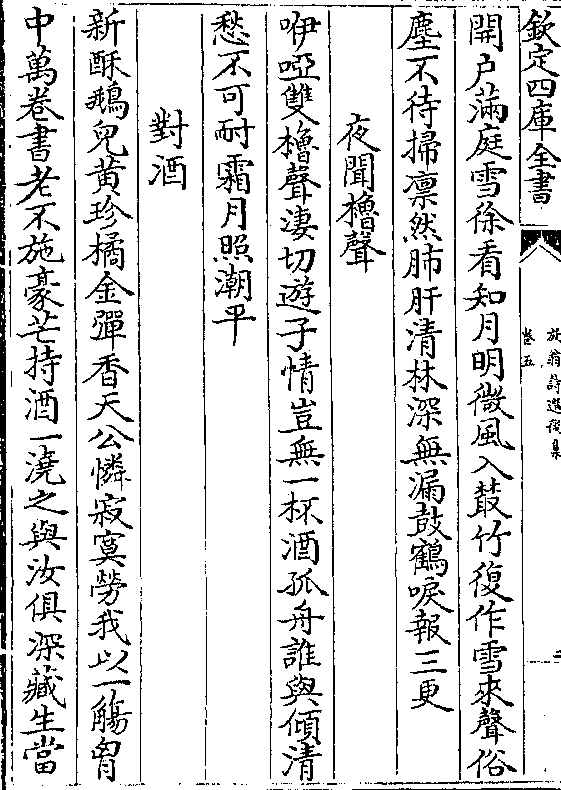 欽定四庫全書
放翁詩選後集
卷五
開户滿庭雪徐看知月明微風入叢竹復作雪來聲俗
塵不待掃凛然肺肝清林深無漏鼓鶴唳報三更
夜聞櫓聲
咿啞雙櫓聲淒切遊子情豈無一杯酒孤舟誰與傾清
愁不可耐霜月照潮平
對酒
新酥鵝兒黄珍橘金彈香天公憐寂寞勞我以一觴胷
中萬卷書老不施豪芒持酒一澆之與汝俱深藏生當